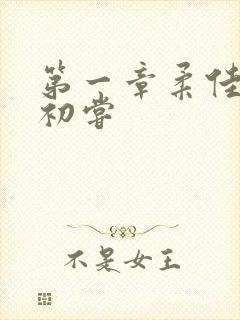 第一章柔佳
初尝
不是女王